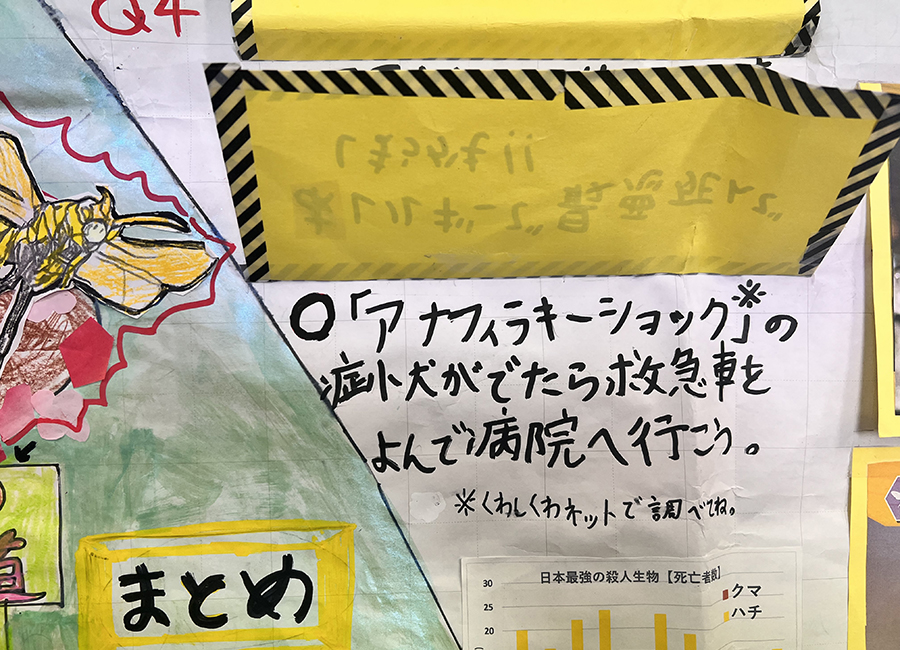 Q4
○「アナフィラキーショック※」の
症状がでたら救急車を
よんで病院へ行こう。
※くわしくわネットで調べてね。
まとめ
日本最強の殺人生物【死亡者数】
30
クマ
25
ハチ
20